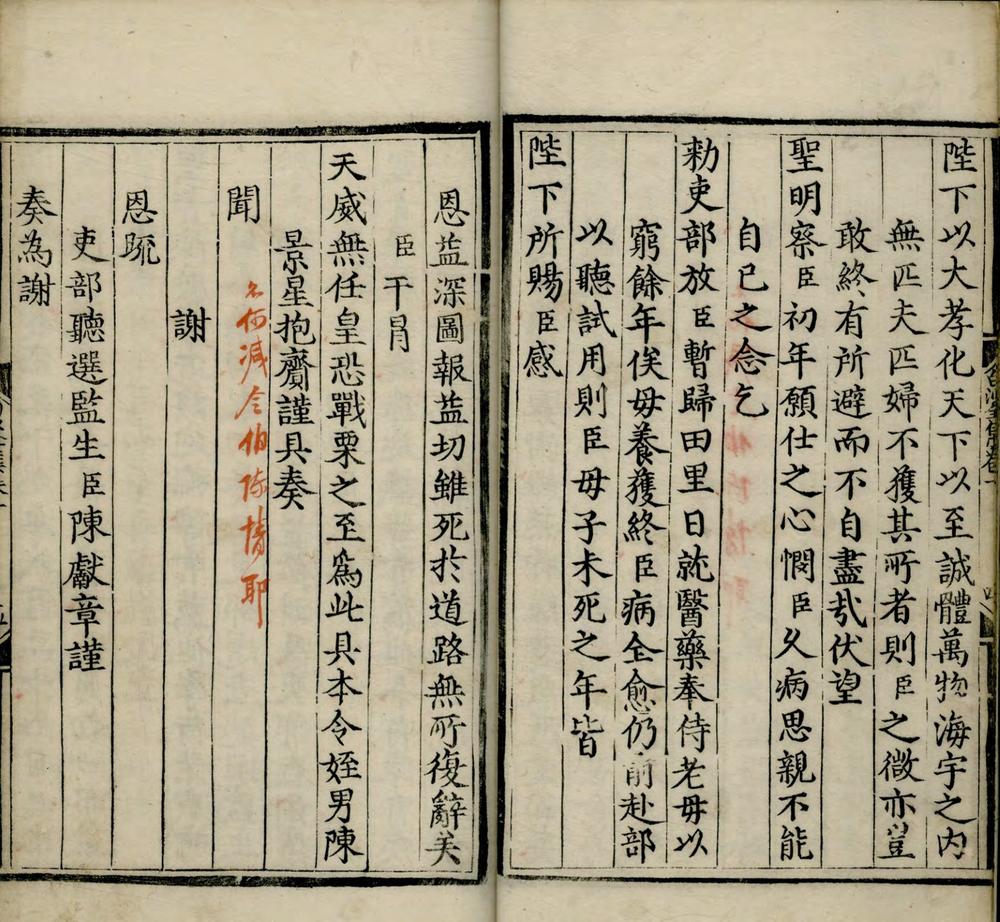 陛下以大孝化天下以至誠體萬物海宇之內
無匹夫匹婦不獲其所者則臣之微亦豈
敢終有所避而不自盡㢤伏望
聖明察臣初年願仕之心憫臣久病思親不能
自已之念乞
勑吏部放臣暫歸田里日就醫藥奉侍老母以
窮餘年俟母養獲終臣病全愈仍前赴部
以聽試用則臣母子未死之年皆
陛下所賜臣感
恩益深圖報益切雖死於道路無所復辭矣
臣干冐
天威無任皇恐戰栗之至為此具本令姪男陳
景星抱賫謹具奏
聞
不何減令伯陳情耶
謝
恩疏
吏部聽選監生臣陳獻章謹
奏為謝